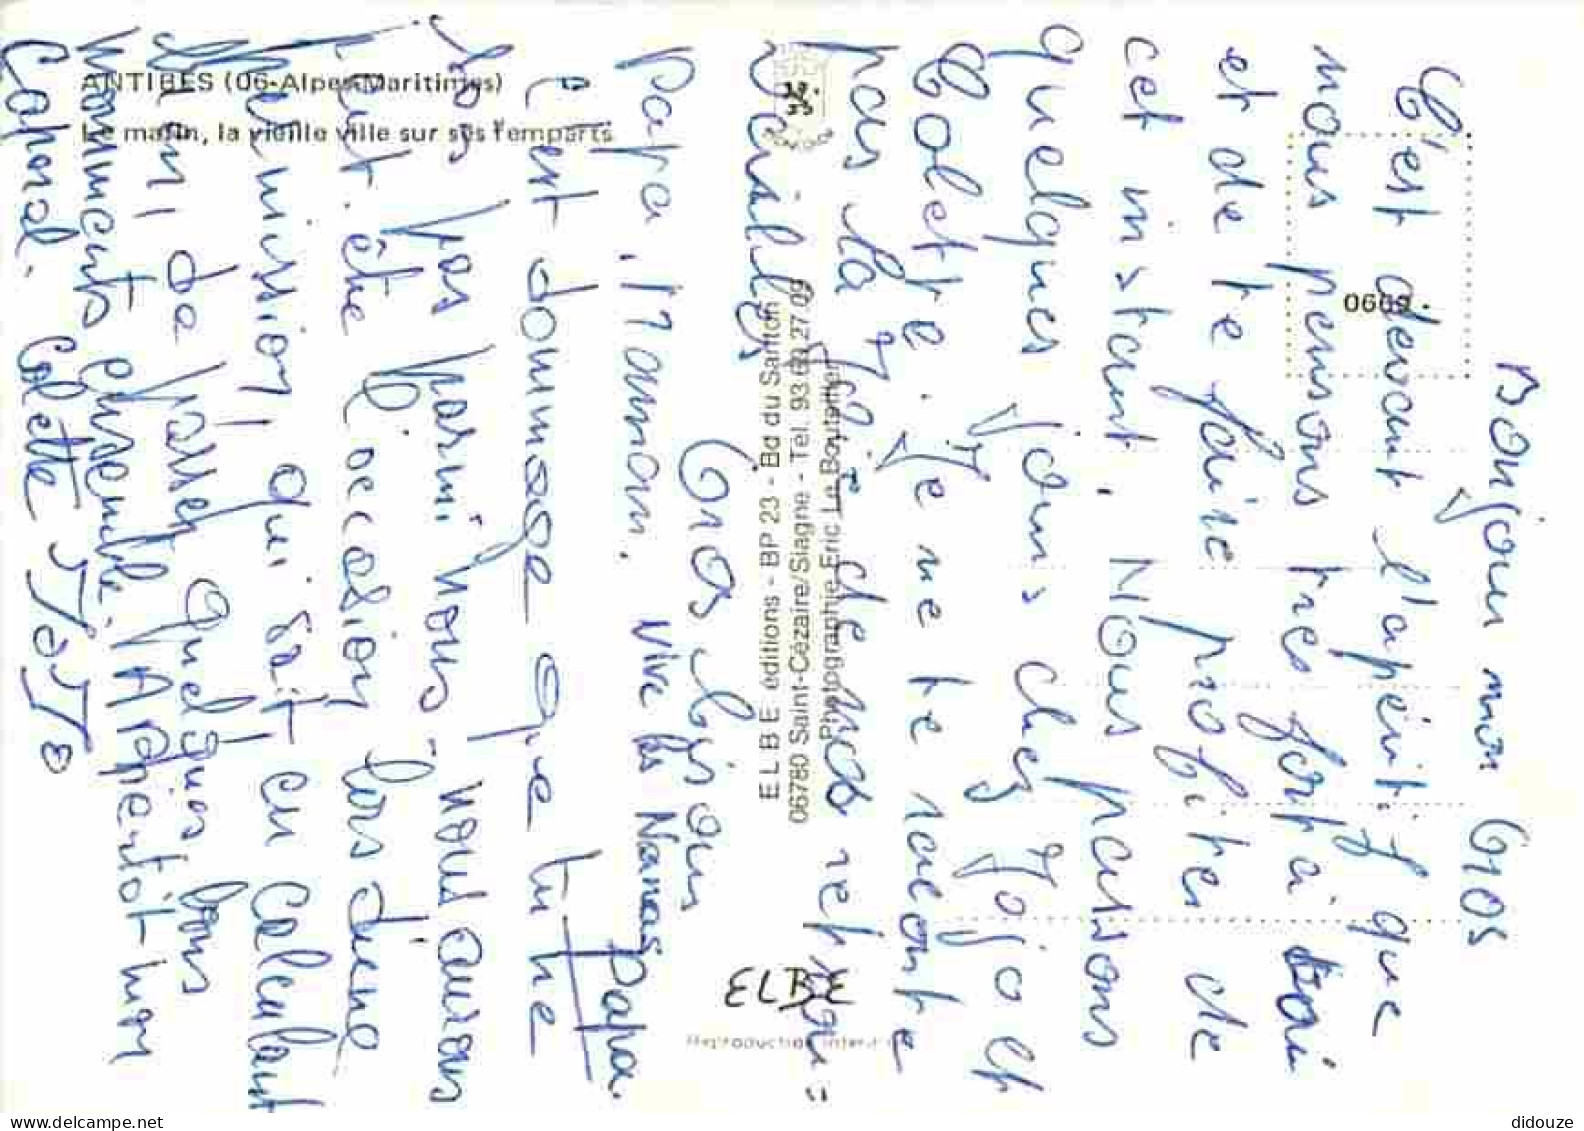 ANTIBES (06-Alpes-Maritimes)
Le matin, la vieille ville sur ses remparts
0669
E L B E éditions - BP 23 - Bd du Sartton
06780 Saint-Cézaire/Siagne - Tel. 93 60 27 09
Photographie Eric Le Boutailler
ELBE
Reproduction interdite
Bonjour mon Gros
C'est devant l'apéritif que
nous pensons très fort à toi
et de te faire profiter de
cet instant. Nous passons
quelques jours chez Jojo et
Colette. Je ne te raconte
pas la joie de nos retrou=
vailles
Gros bisous
papa, Maman. Vive les Nanas papa.
C'est dommage que tu ne
sois pas parmi nous - nous aurions
peut-être l'occasion lors d'une
permission, qui sait en calculant
bien, de passer quelques bons
moments ensemble. A Bientôt mon
Caporal. Colette JoJo
didouze